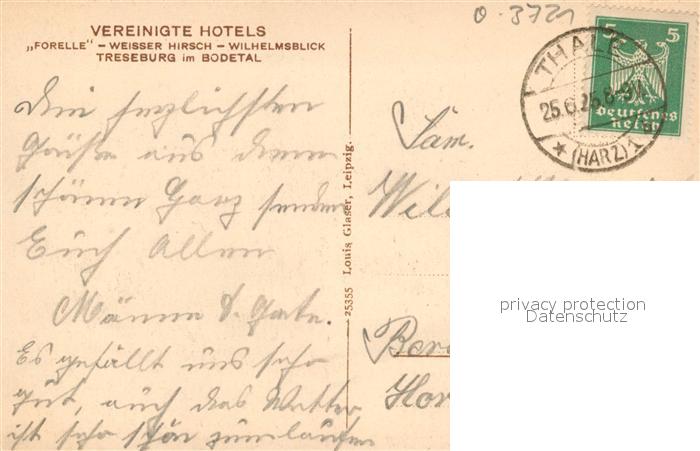 O-3721
VEREINIGTE HOTELS
„FORELLE" – WEISSER HIRSCH – WILHELMSBLICK
TRESEBURG im BODETAL
5 5
Deutsches
Reich
THALE
25.6.25.8-9V.
★ (HARZ)
Die herzlichsten
Grüße aus dem
schönen Harz senden
Euch Allen
Männe
Es gefällt uns sehr
gut, auch das Wetter
ist sehr schön zum laufen
Fam.
25355 Louis Glaser, Leipzig.
privacy protection
Datenschutz